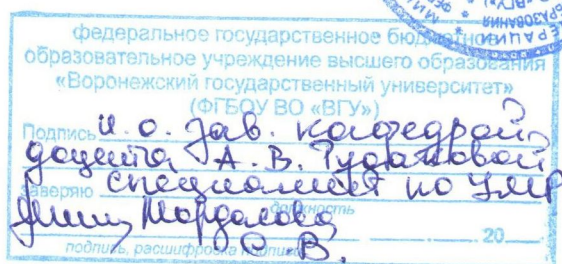 РАЦИИ
ОБРАЗОВАНИЯ
ВГУ
федеральное государственное бюджетное
образовательное учреждение высшего образования
«Воронежский государственный университет»
(ФГБОУ ВО «ВГУ»)
Подпись и.о. зав. кафедрой
доцента А.В.
заверяю специалист по УМР
должность
20
подпись, расшифровка подписи
С В.